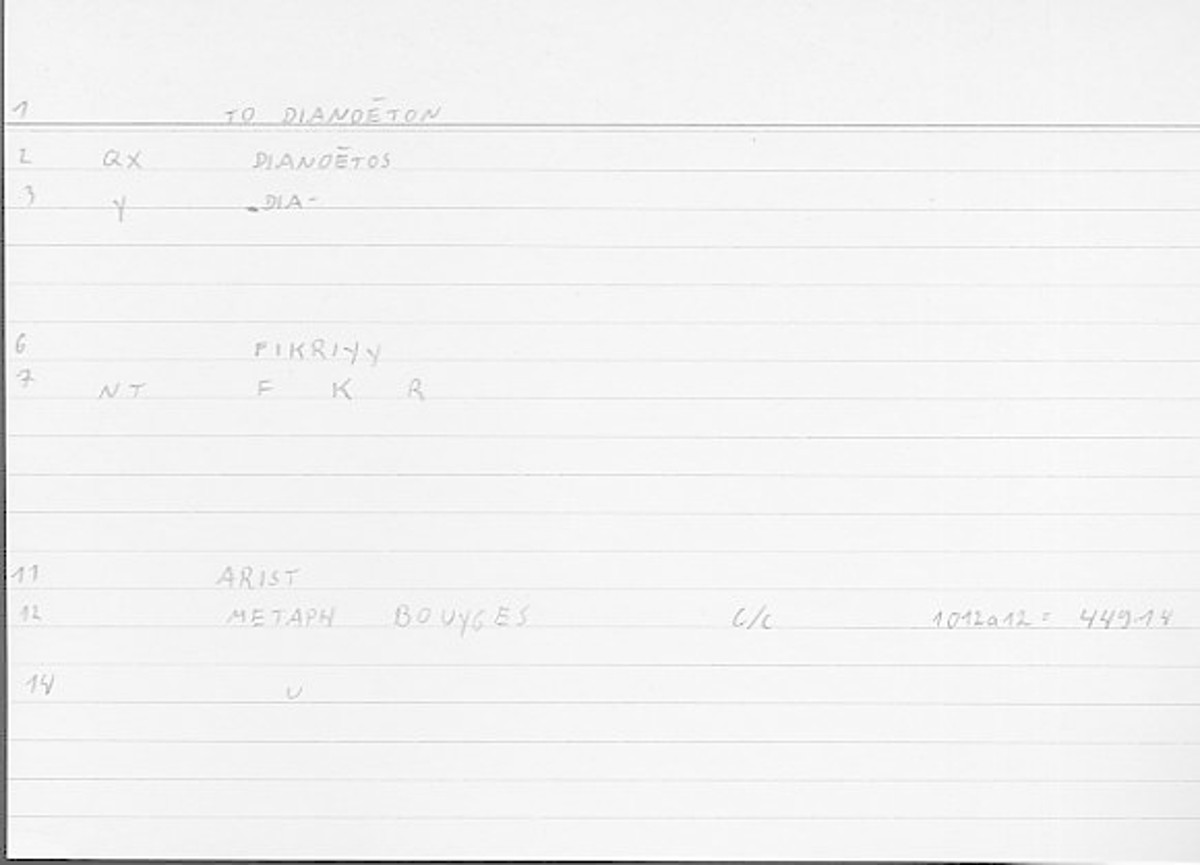 1 TO DIANOĒTON
2 QX DIANOĒTOS
3 Y DIA-
6 FIKRIYY
7 NT F K R
11 ARIST
12 METAPH BOUYGES C/C 1012a12 = 449.14
14 U